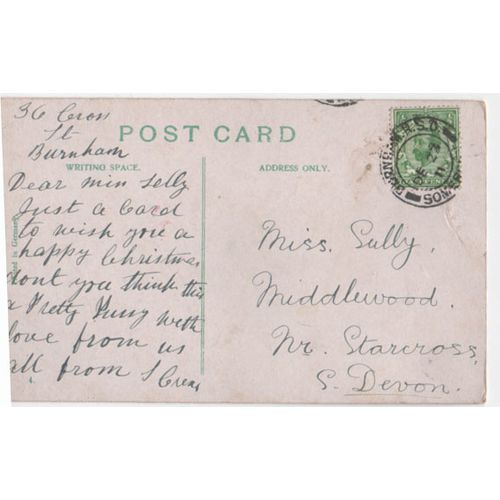 36 Cross
St
Burnham
POST CARD
WRITING SPACE.
ADDRESS ONLY.
Dear miss Selly
Just a Card
to wish you a
happy Christmas
dont you think this
a Pretty with
love from us
all from
Miss. Sully,
Middlewood.
Nr. Starcross,
S. Devon.
in Germany